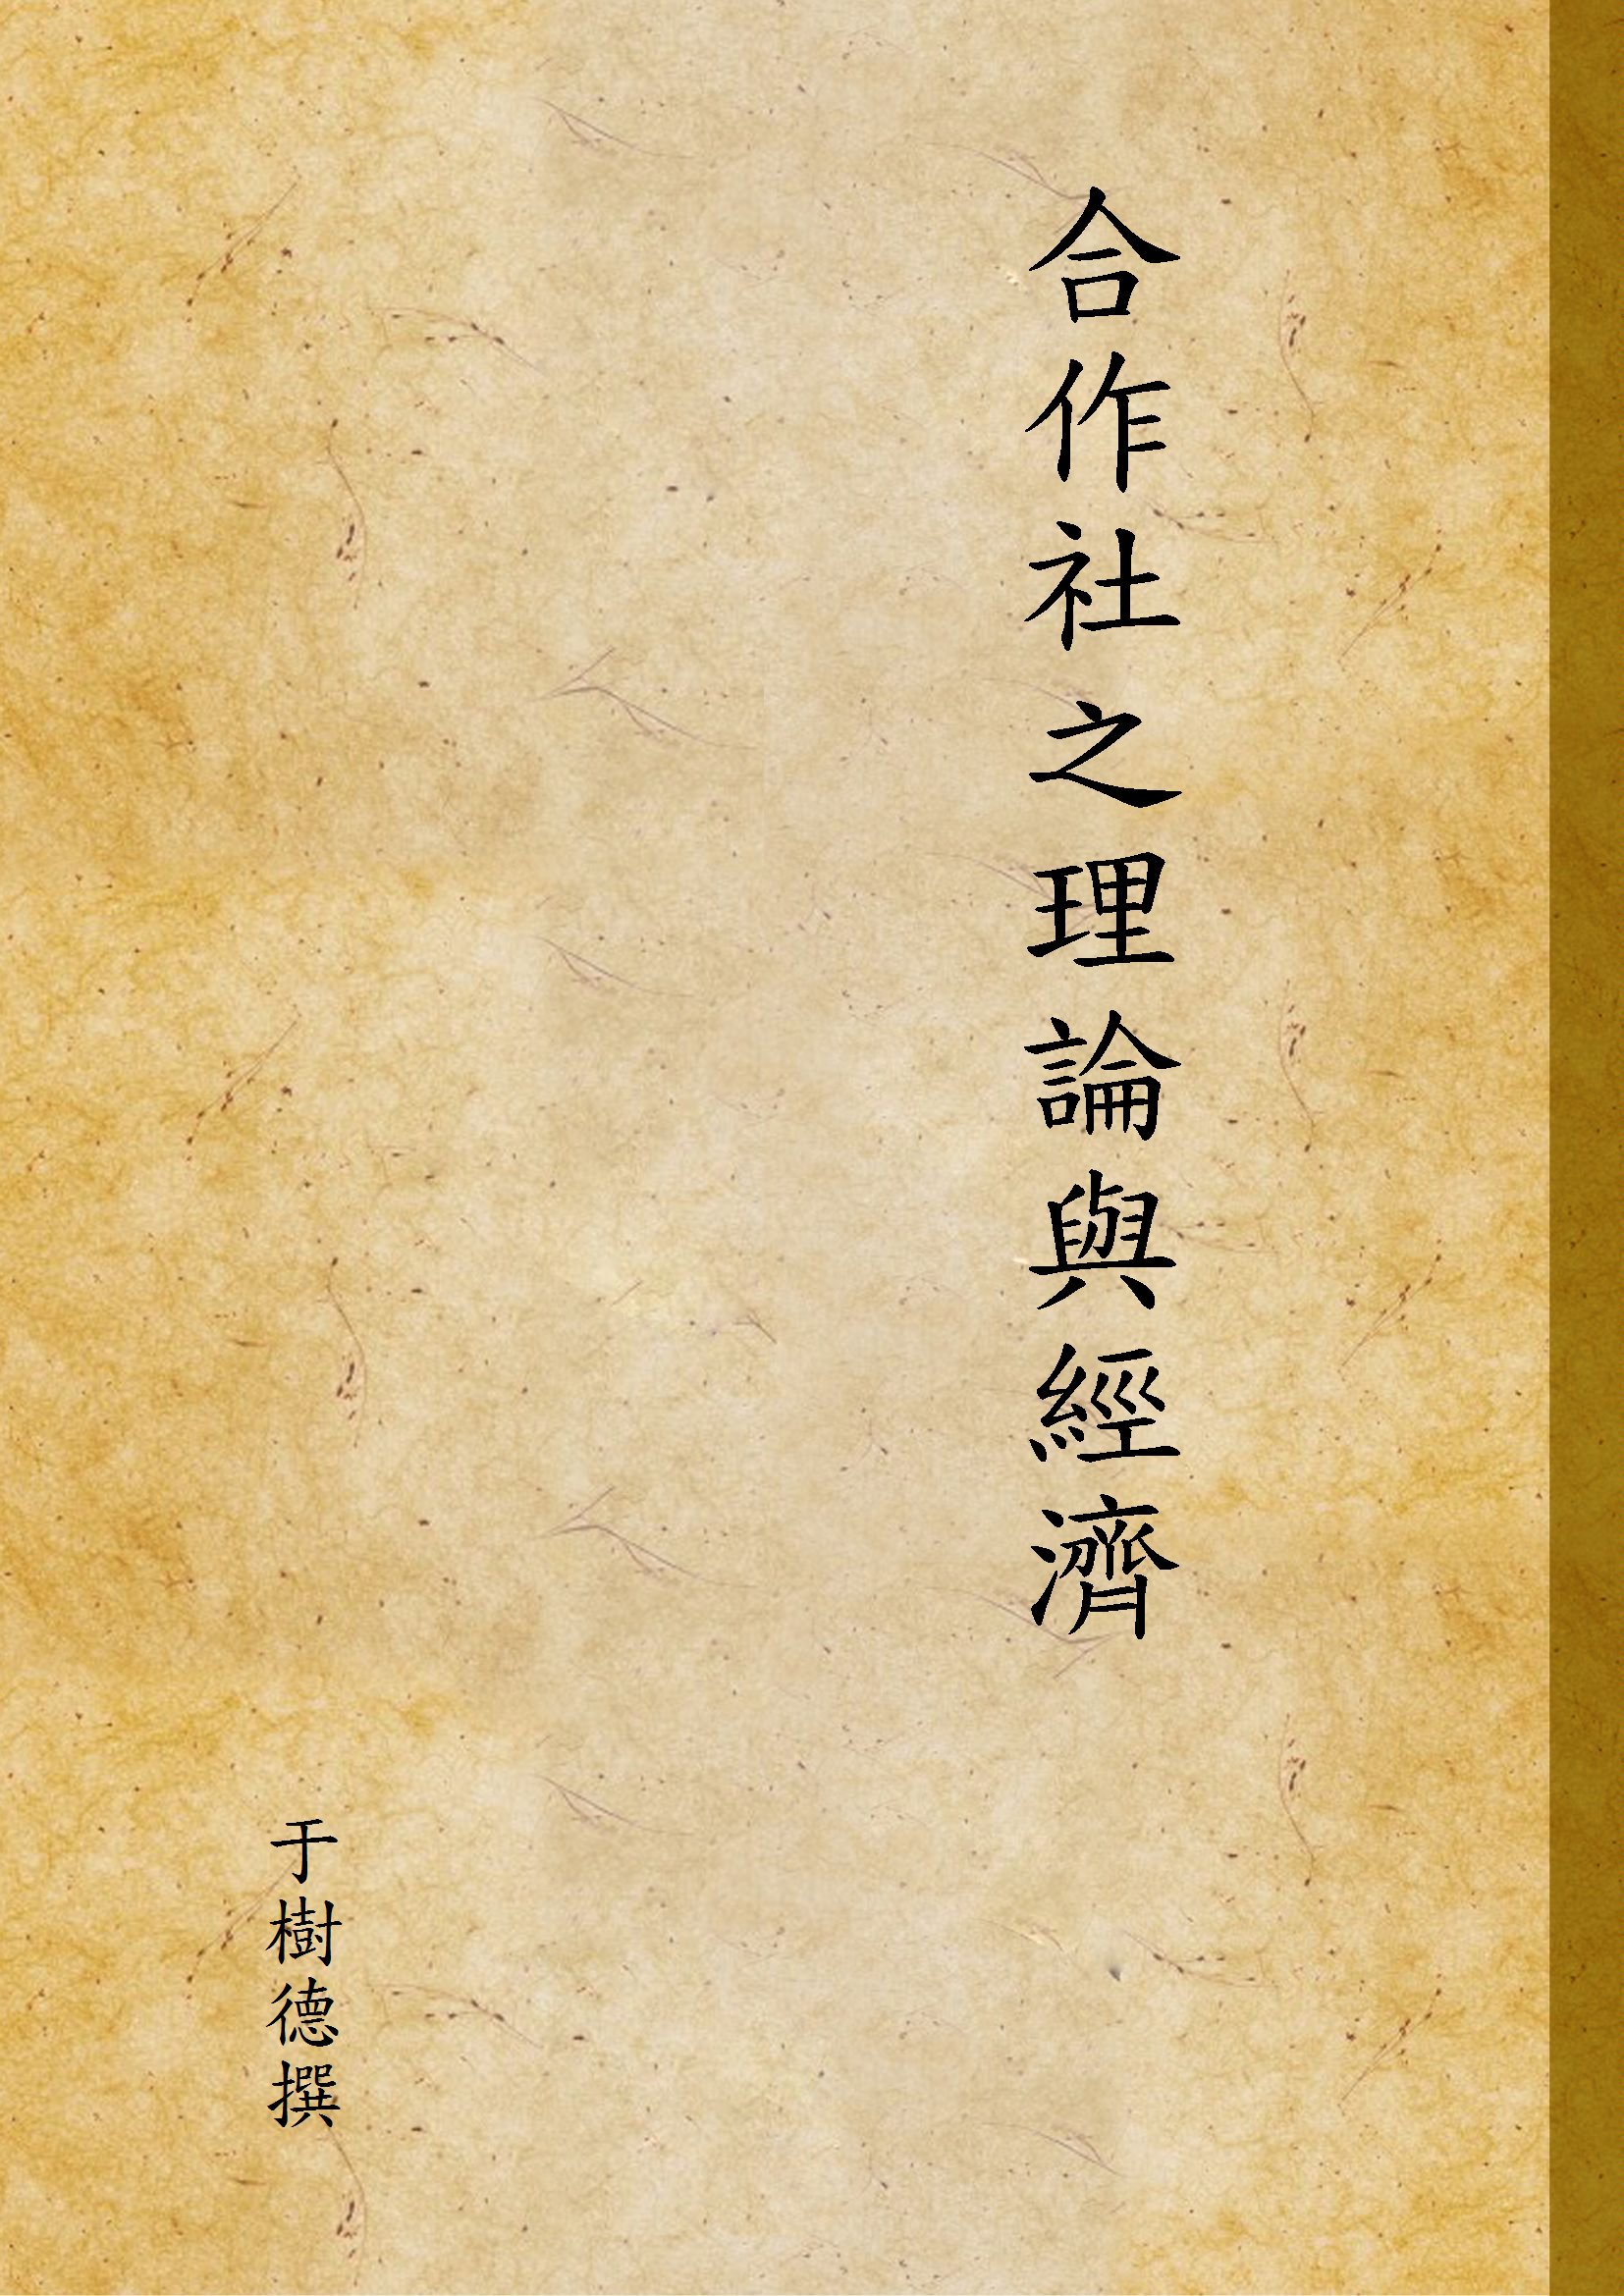 合作社之理論與經濟
于樹德撰